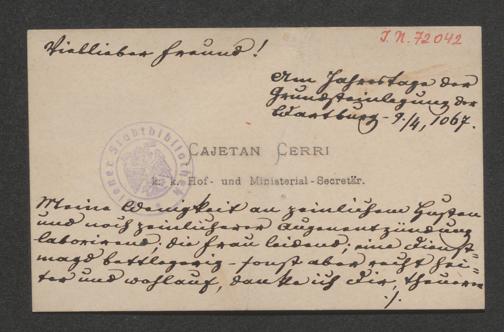 J. N. 72042
Viellieber Freund!
Am Jahrestage der
Grundsteinlegung der
Wartburg - 9./4, 1067.
Wiener Stadtbibliothek
CAJETAN CERRI
k. k. Hof- und Ministerial-Secretär.
Meine Wenigkeit an peinlichem Husten
und noch peinlicherer Augenentzündung
laborirend; die Frau leidend; eine Dienst=
magd bettlegerig - sonst aber recht hei=
ter und wohlauf, danke ich Dir, theurer
./.